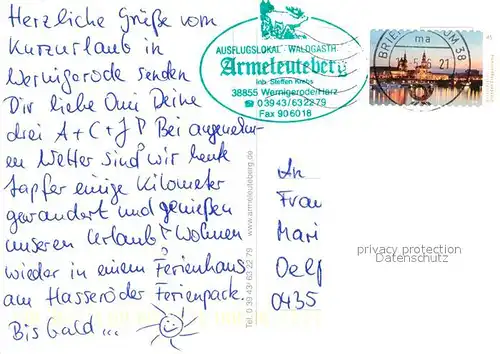 Herzliche Grüße vom
Kurzurlaub in
Wernigerode senden
Dir liebe Omi Deine
drei A+C+J! Bei angenehm-
en Wetter sind wir heute
tapfer einige Kilometer
gewandert und genießen
unseren Urlaub! Wohnen
wieder in einem Ferienhaus
am Hasseröder Ferienpark.
Bis bald...
AUSFLUGSLOKAL · WALDGASTH.
Armeleuteberg
Inh. Steffen Krebs
38855 Wernigerode/Harz
☎ 03943/632279
Fax 906018
Tel. 0 39 43/ 63 22 79 www.armeleuteberg.de
BRIEFZENTRUM 38
ma
21
45
An
Frau
Mari
Oelf
0435
privacy protection
Datenschutz